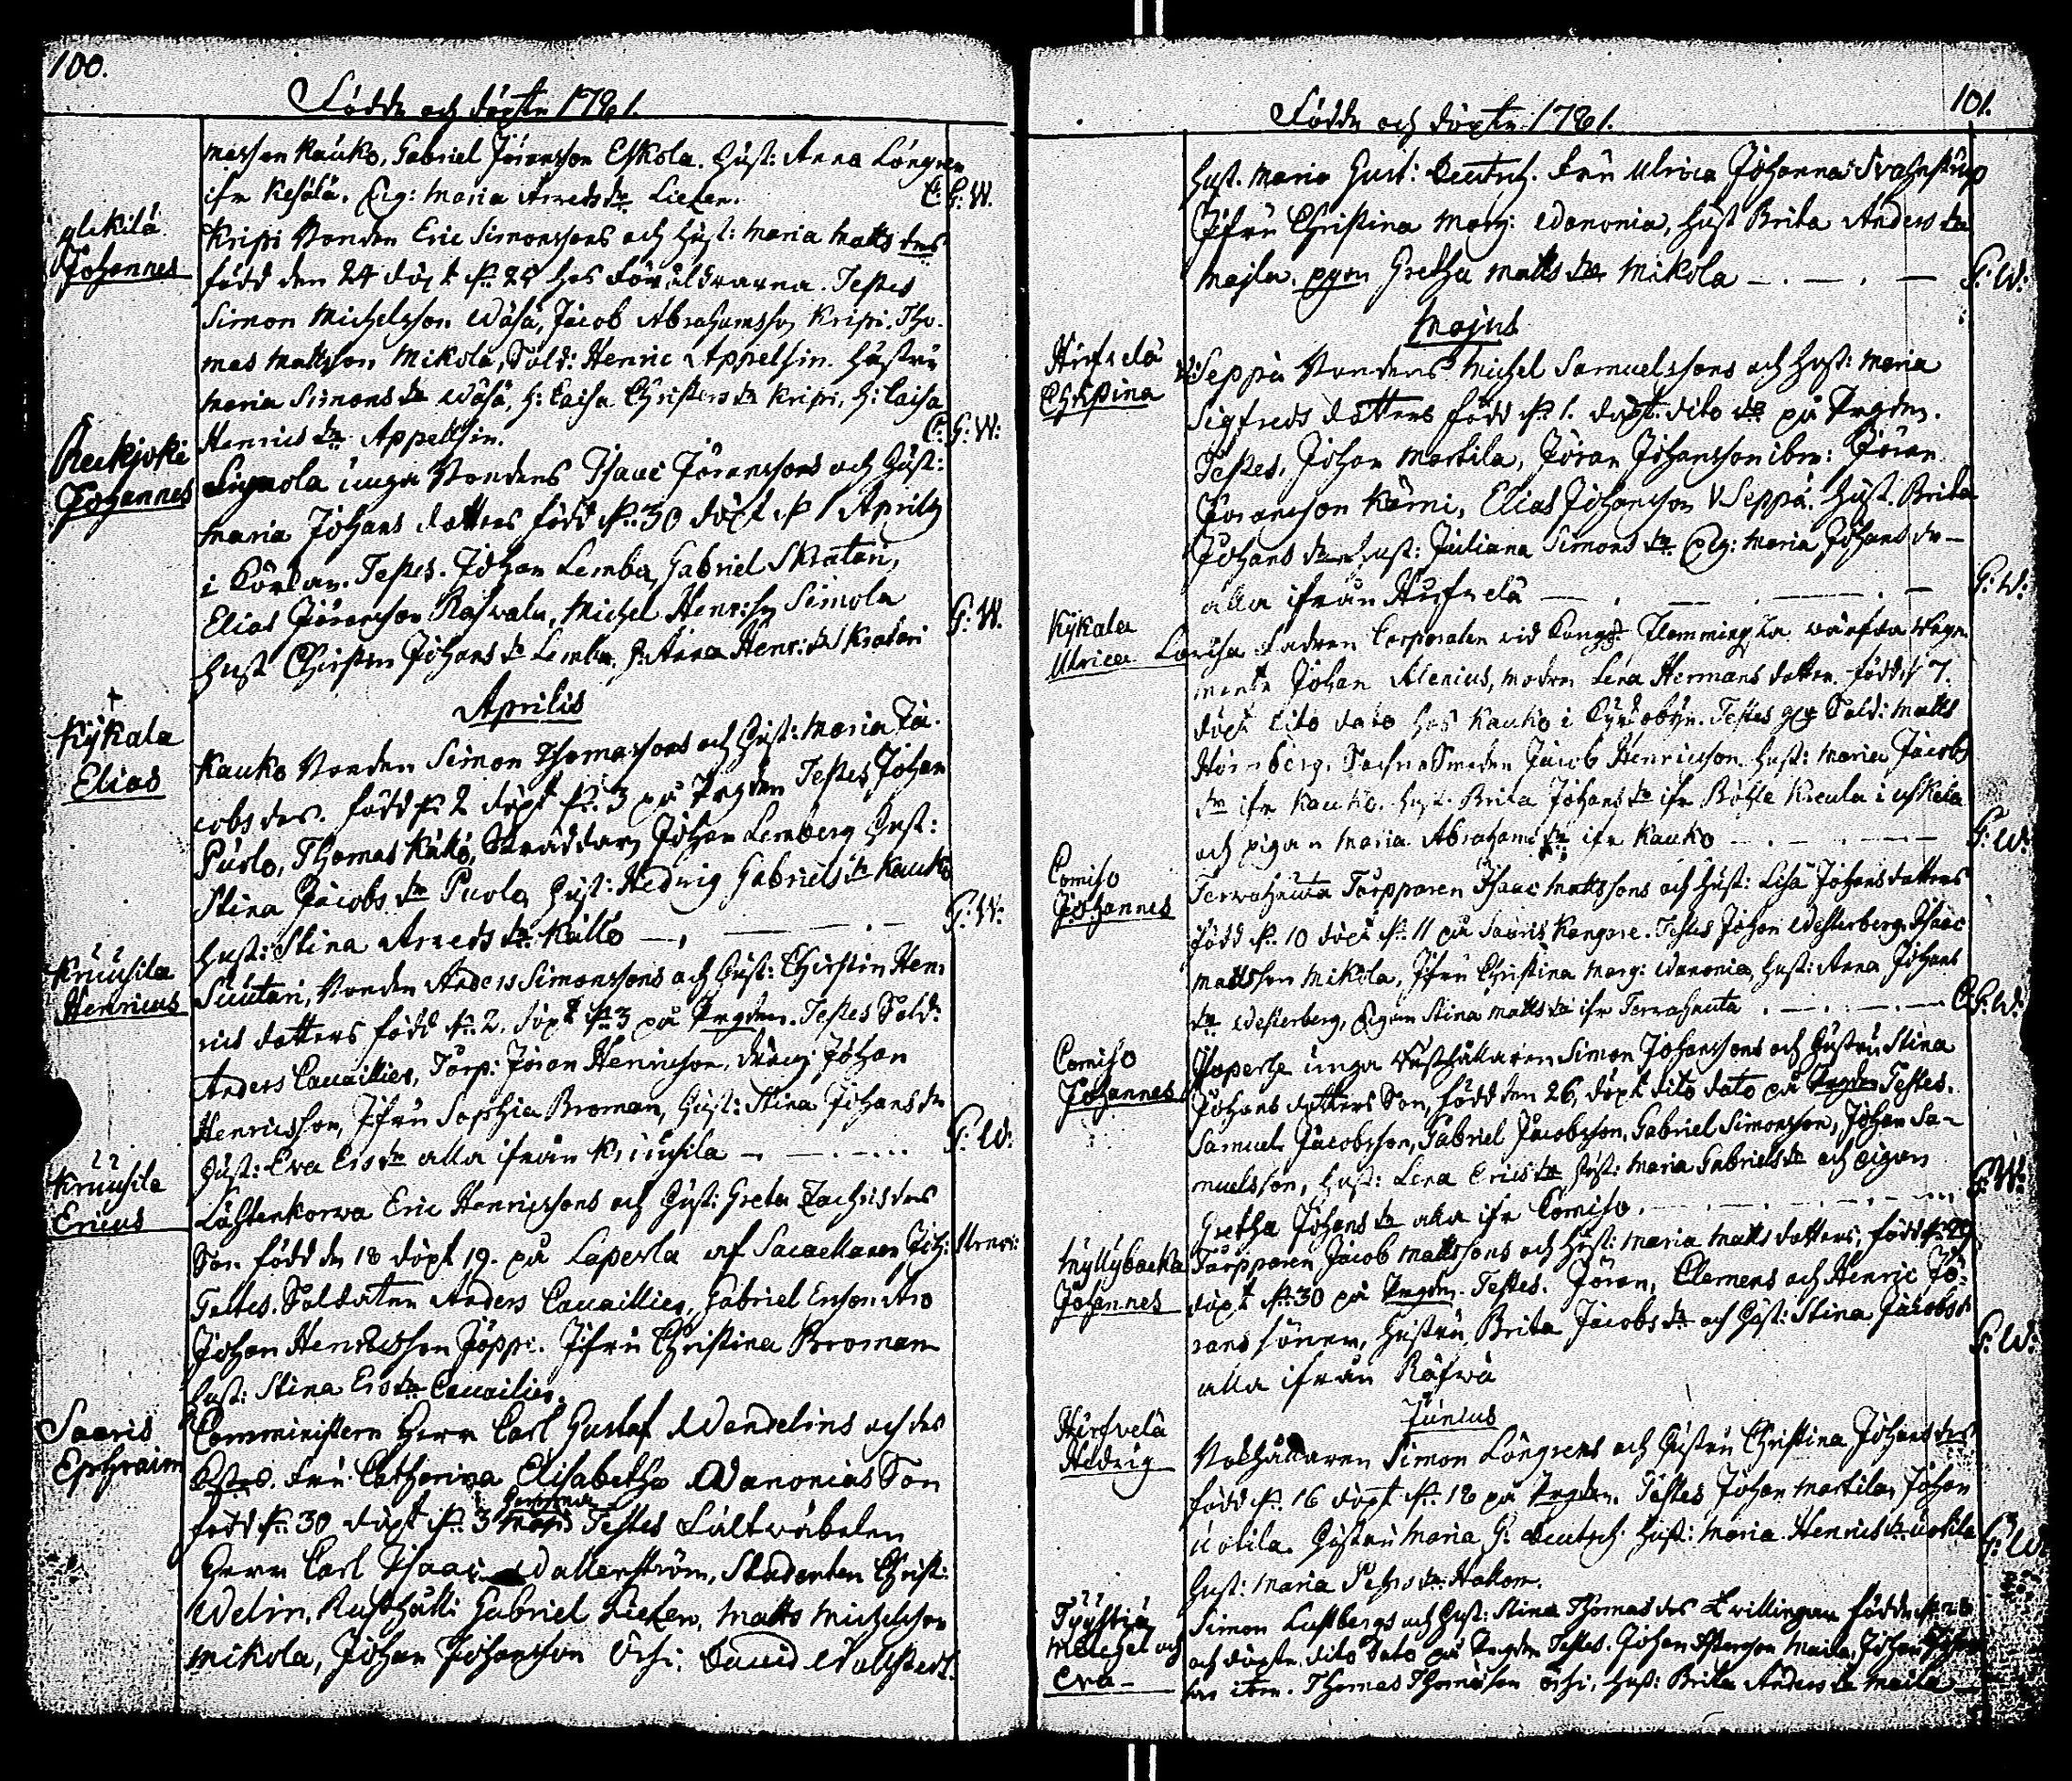 100.
Födde och döpte 1781.
masson Kauko, Gabriel Jöransson Eskola. Hust: Anna Löngren
ifr Kesälä. Pig: Maria Arvedsdr Liexen. C: G: W.
Ylikilä
Johannes
Krispi Bonden Eric Simonssons och Hust: Maria Matts drs
född den 24 döpt dn 25 hos Föräldrarna. Testes
Simon Michelsson Wäsä, Jacob Abrahamsson Krispi, Tho-
mas Mattsson Mikola, Sold: Henric Appelsin. Hustru
Maria Simonsdr Wäsä, H: Caisa Christersdr Krispi, H: Caisa
Henricsdr Appelsin. C: G: W:
Reckijoki
Johannes
unga Bondens Isaac Jöranssons och Hust:
Maria Johans dotters född dn 30 döpt d 1 Aprilis
i Körkan. Testes. Johan Lemba, Gabriel Skratari,
Elias Jöransson Rahwala, Michel Henrisson Simola
Hust Christin Johansdr Lemba, H: Anna Henr: dr Skratari G: W.
Aprilis
+
Kÿkala
Elias
Kauko Bonden Simon Thomassons och Hust: Maria Ja-
cobsdrs. född dn 2 döpt dn 3 på Prgdn Testes Johan
Puolo, Thomas Kåko, Skräddarn Johan Lemberg Hust:
Stina Jacobsdr Puola, Hust: Hedvig Gabrielsdr Kauko
Hust: Stina Arvedsdr Källö G: W:
Kruusila
Henricus
Suutari, Bonden Anders Simonssons och Hust: Christin Hen-
rics dotters född dn 2. döpt dn 3 på Prgdn. Testes Sold:
Anders Cavaillier, Torp: Jöran Henricson, dräng Johan
Henricsson, Jfru Sophia Broman, Hust: Stina Johansdr
Hust: Eva Ersdr alla ifrån Kruusila G: W:
Kruusila
Ericus
Lähtenkorwa Eric Henricssons och Hust: Greta Zachrisdrs
Son född dn 18 döpt 19. på Laperla af Sacellanen Joh:
Testes. Soldaten Anders Cavaillier, Gabriel Ersson Aro
Johan Henricsson Jöppi. Jfru Christina Broman
Hust: Stina Ersdr Cavailier.
Saaris
Ephraim
Comministern Herr Carl Gustaf Wendelins och des
Fru Catharina Elisabetha Wanonias Son
född dn 30 döpt dn 3 Maji Testes Fältwäbelen
Herr Carl Isaac Wallenström, Studenten Christ:
Welin, Rusthåll: Gabriel Liexen, Matts Michelsson
Mikola, Johan Johansson Ochi, David Wallstedt.
101.
Födde och döpte 1781.
Hust. Maria Gust: Deutsch. Fru Ulrica Johanna Svahnström
Jfru Christina Marg: Wanonia, Hust Brita Andersdr
Majla. pgn Gretha Mattsdr Mikola G: W:
Majus
Hirfvelä
Christina
V: Seppä Bondens Michel Samuelssons och Hust: Maria
Sigfreds dotters född dn 1. döpt dito do på Prgdn.
Testes, Johan Martila, Jöran Johansson ibm: Jöran
Jöransson Kärni, Elias Johansson V Seppä. Hust. Brita
Johansdr Hust: Juliana Simonsdr Pig: Maria Johansdr
alla ifrån Hirfvelä G: W:
Kÿkala
Ulrica Lovisa
Fadren Corporalen vid Kongl Flemmingska värfva Rege-
mente Johan Alenius, modren Lena Hermans dotter. född d 7.
döpt dito dato hos Kauko i Kÿkaby. Testes Sold: Matts
Hörnberg, Smeden Jacob Henricsson, Hust: Maria Jacobs
dr ifr Kauko. Hust: Brita Johansdr ifr i Uskela
och pigan Maria Abrahamsdr ifr Kauko G: W:
Comiso
Johannes
Terwahauta Torpparen Isaac Mattssons och Hust: Lisa Johansdotters
född dn 10 döpt dn 11 på Saaris Kangare. Testes Johan Westerberg, Isaac
Mattsson Mikola, Jfru Christina Marg: Wanonia, Hust: Anna Johans
dr Westerberg, Pigan Stina Mattsdr ifr Terwahauta C: G: W:
Comiso
Johannes
Haperla unga Rusthållaren Simon Johanssons och Hustru Stina
Johans dotters Son, född den 26, döpt dito dato på Prgdn Testes.
Samuel Jacobsson, Gabriel Jacobsson, Gabriel Simonsson, Johan Sa-
muelsson, Hust: Lena Ericsdr Hust: Maria Gabrielsdr och Pigan
Gretha Johansdr alla ifr Comiso. G: W:
Mÿllÿbacka
Johannes
Torpparen Jacob Mattssons och Hust: Maria Matts dotters, född dn 29
döpt dn 30 på Prgdn. Testes. Jöran, Clemens och Henric Jö-
rans söner, Hustru, Brita Jacobsdr och Hust: Stina Jacobsdr
alla ifrån Räfwä G: W:
Junius
Hirfvelä
Hedvig
Simon Löngrens och Hustru Christina Johansdrs
född dn 16 döpt dn 18 på Prgdn. Testes Johan Martila, Johan
Uotila. Hustru Maria G. Deutsch Hust: Maria Henricsdr Uotila
Hust: Maria Pehrsdr Hakom. G: W
Tyÿstiä
Michel och
Eva
Simon Lustbergs och Hust: Stina Thomasdrs Tvillingar födde dn 28
och döpte dito dato på Prgdn Testes. Johan Maila, Johan
son ibm. Thomas Thomasson Ochi, Hust: Brita Andersdr Maila